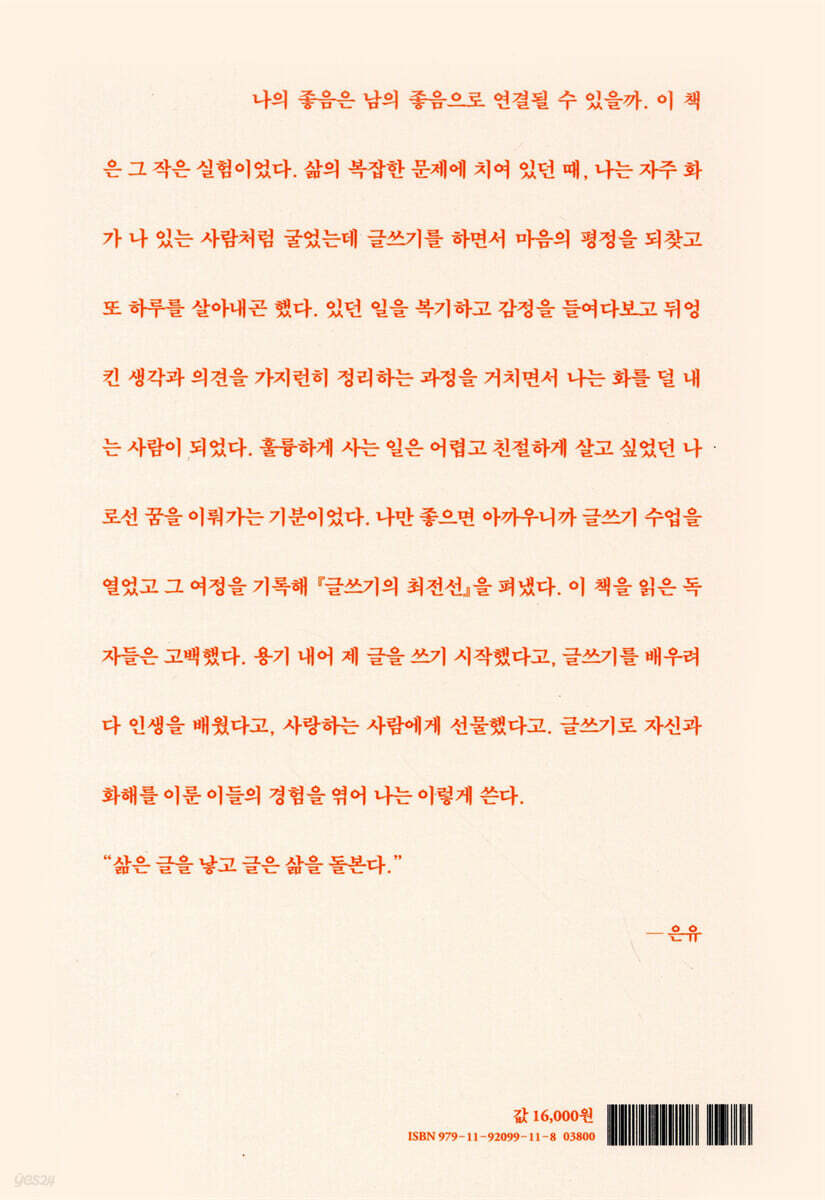 나의 좋음은 남의 좋음으로 연결될 수 있을까. 이 책
은 그 작은 실험이었다. 삶의 복잡한 문제에 치여 있던 때, 나는 자주 화
가 나 있는 사람처럼 굴었는데 글쓰기를 하면서 마음의 평정을 되찾고
또 하루를 살아내곤 했다. 있던 일을 복기하고 감정을 들여다보고 뒤엉
킨 생각과 의견을 가지런히 정리하는 과정을 거치면서 나는 화를 덜 내
는 사람이 되었다. 훌륭하게 사는 일은 어렵고 친절하게 살고 싶었던 나
로선 꿈을 이뤄가는 기분이었다. 나만 좋으면 아까우니까 글쓰기 수업을
열었고 그 여정을 기록해 『글쓰기의 최전선』을 펴냈다. 이 책을 읽은 독
자들은 고백했다. 용기 내어 제 글을 쓰기 시작했다고, 글쓰기를 배우려
다 인생을 배웠다고, 사랑하는 사람에게 선물했다고. 글쓰기로 자신과
화해를 이룬 이들의 경험을 엮어 나는 이렇게 쓴다.
“삶은 글을 낳고 글은 삶을 돌본다.”
— 은유
값 16,000원
ISBN 979-11-92099-11-8 03800
yes24